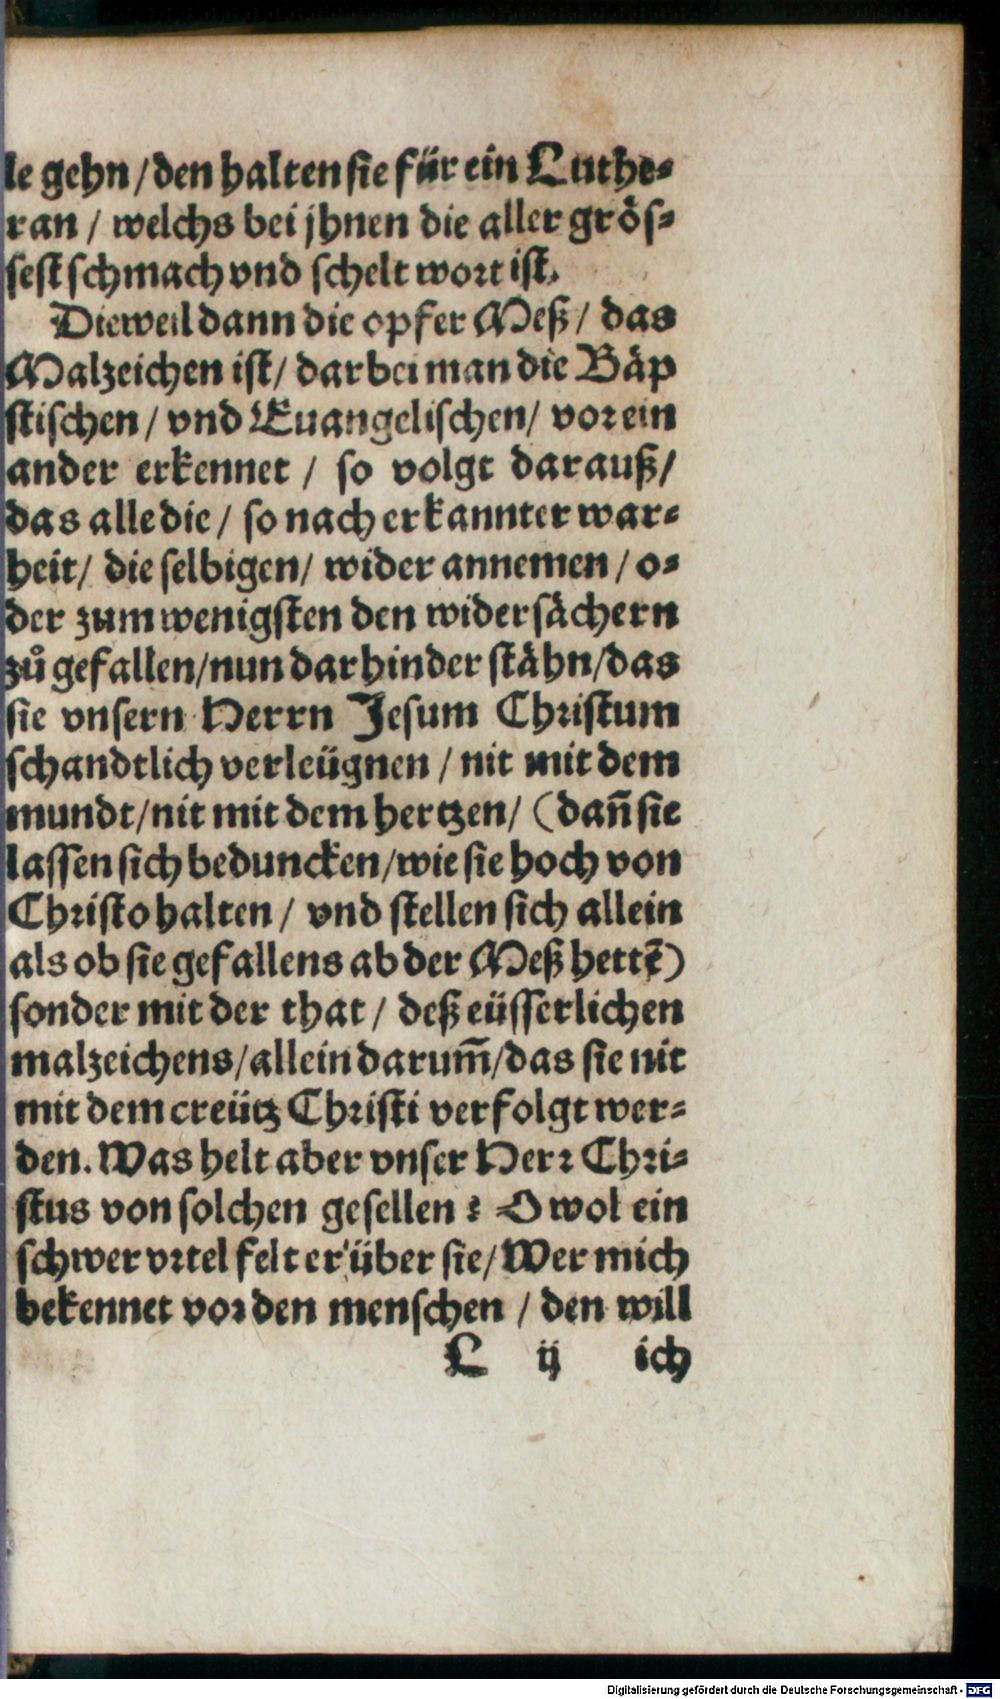 le gehn / den halten sie für ein Luthe⸗
ran / welchs bei jhnen die aller grös⸗
sest schmach vnd schelt wort ist.
Dieweil dann die opfer Meß / das
Malzeichen ist / darbei man die Bäp
stischen / vnd Euangelischen / vor ein
ander erkennet / so volgt darauß /
das alle die / so nach erkannter war⸗
heit / die selbigen / wider annemen / o⸗
der zum wenigsten den widersächern
zuͦ gefallen / nun dar hinder stähn / das
sie vnsern Herrn Jesum Christum
schandtlich verleügnen / nit mit dem
mundt / nit mit dem hertzen / (dañ sie
lassen sich beduncken / wie sie hoch von
Christo halten / vnd stellen sich allein
als ob sie gefallens ab der Meß hettẽ)
sonder mit der that / deß eüsserlichen
malzeichens / allein darum̃ / das sie nit
mit dem creütz Christi verfolgt wer⸗
den. Was helt aber vnser Herr Chri⸗
stus von solchen gesellen? O wol ein
schwer vrtel felt er über sie / Wer mich
bekennet vor den menschen / den will
L ij ich
Digitalisierung gefördert durch die Deutsche Forschungsgemeinschaft - DFG